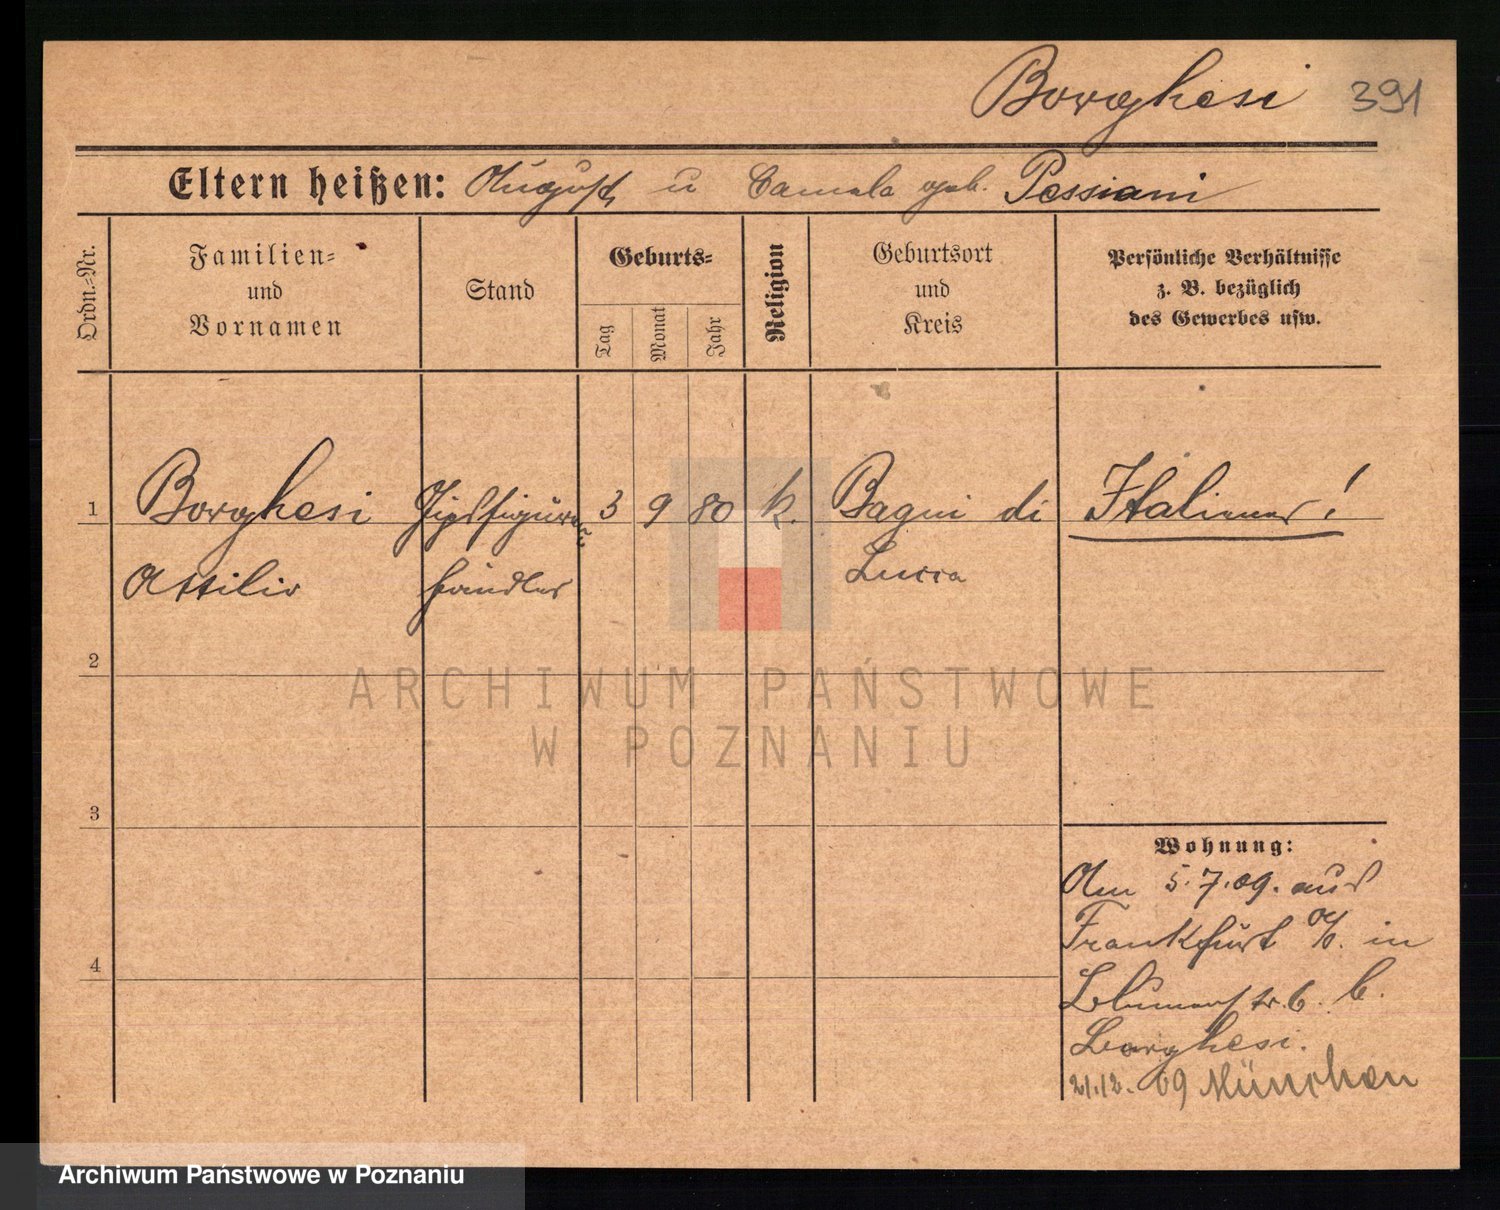 Borghesi 391
Eltern heißen: August u Camela geb. Pessiani
Ordn.-Nr.
Familien-
und
Vornamen
Stand
Geburts-
Tag
Monat
Jahr
Religion
Geburtsort
und
Kreis
Persönliche Verhältnisse
z. B. bezüglich
des Gewerbes usw.
1 Borghesi Gipsfiguren 3 9 80 k. Bagni di Italiener!
Attilio händler Lucca
2
3
4
Wohnung:
Am 5.7.09. aus
Frankfurt a/O. in
Blumenstr. 6. b.
Borghesi.
21.12.09 München
ARCHIWUM PAŃSTWOWE
W POZNANIU
Archiwum Państwowe w Poznaniu